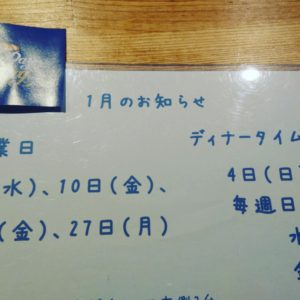 1月のお知らせ
業日
水)、10日(金)、
(金)、27日(月)
ディナータイム
4日(日
毎週日
水
金